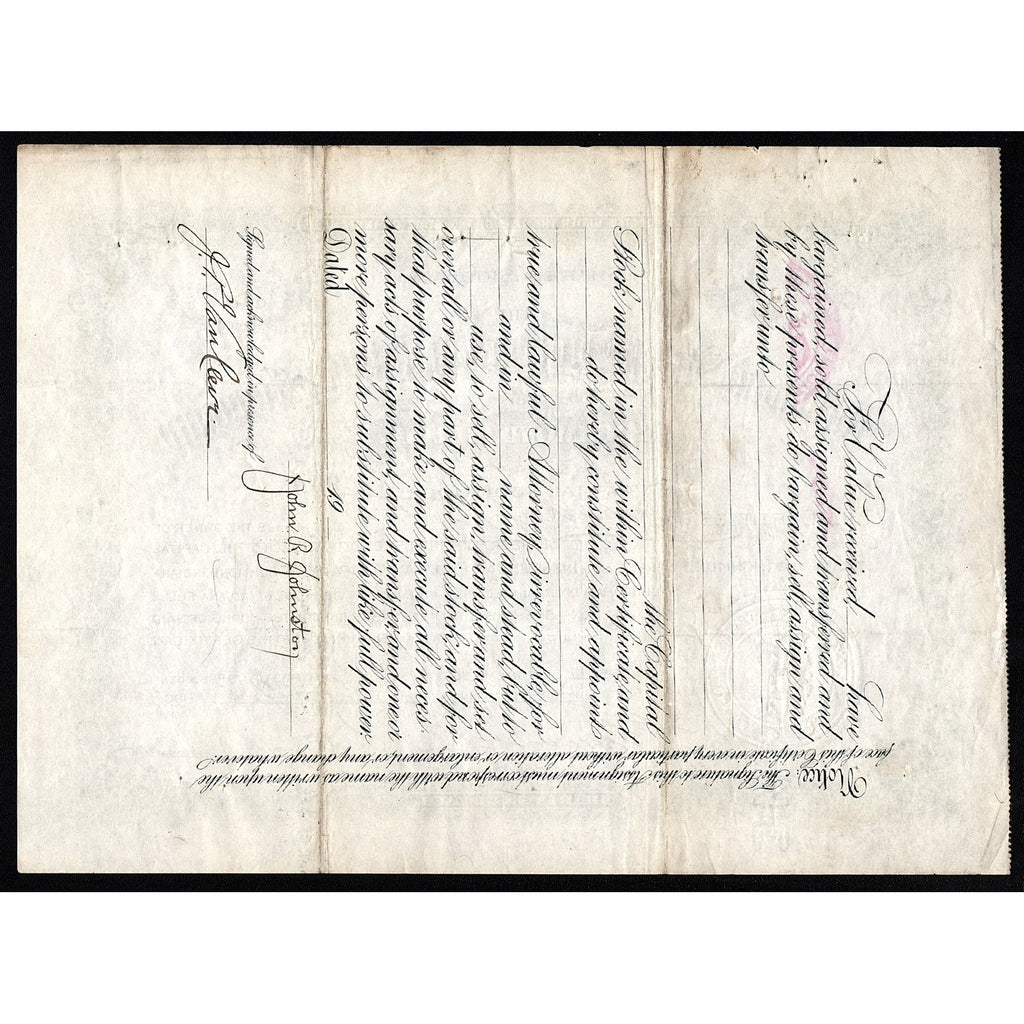 For Value received, have
bargained, sold, assigned and transferred, and
by these presents do bargain, sell, assign and
transfer unto
the Capital
Stock named in the within Certificate, and
do hereby constitute and appoint
true and lawful Attorney, irrevocable, for
and in name and stead, but to
use, to sell, assign, transfer and set
over, all or any part of the said stock, and for
that purpose to make and execute all neces-
sary acts of assignment and transfer, and one or
more persons to substitute with like full power.
Dated 19
John R. Johnston
Signed and acknowledged in presence of
Notice: The Signature to this Assignment must correspond with the name as written upon the
face of this Certificate in every particular without alteration or enlargement, or any change whatever.